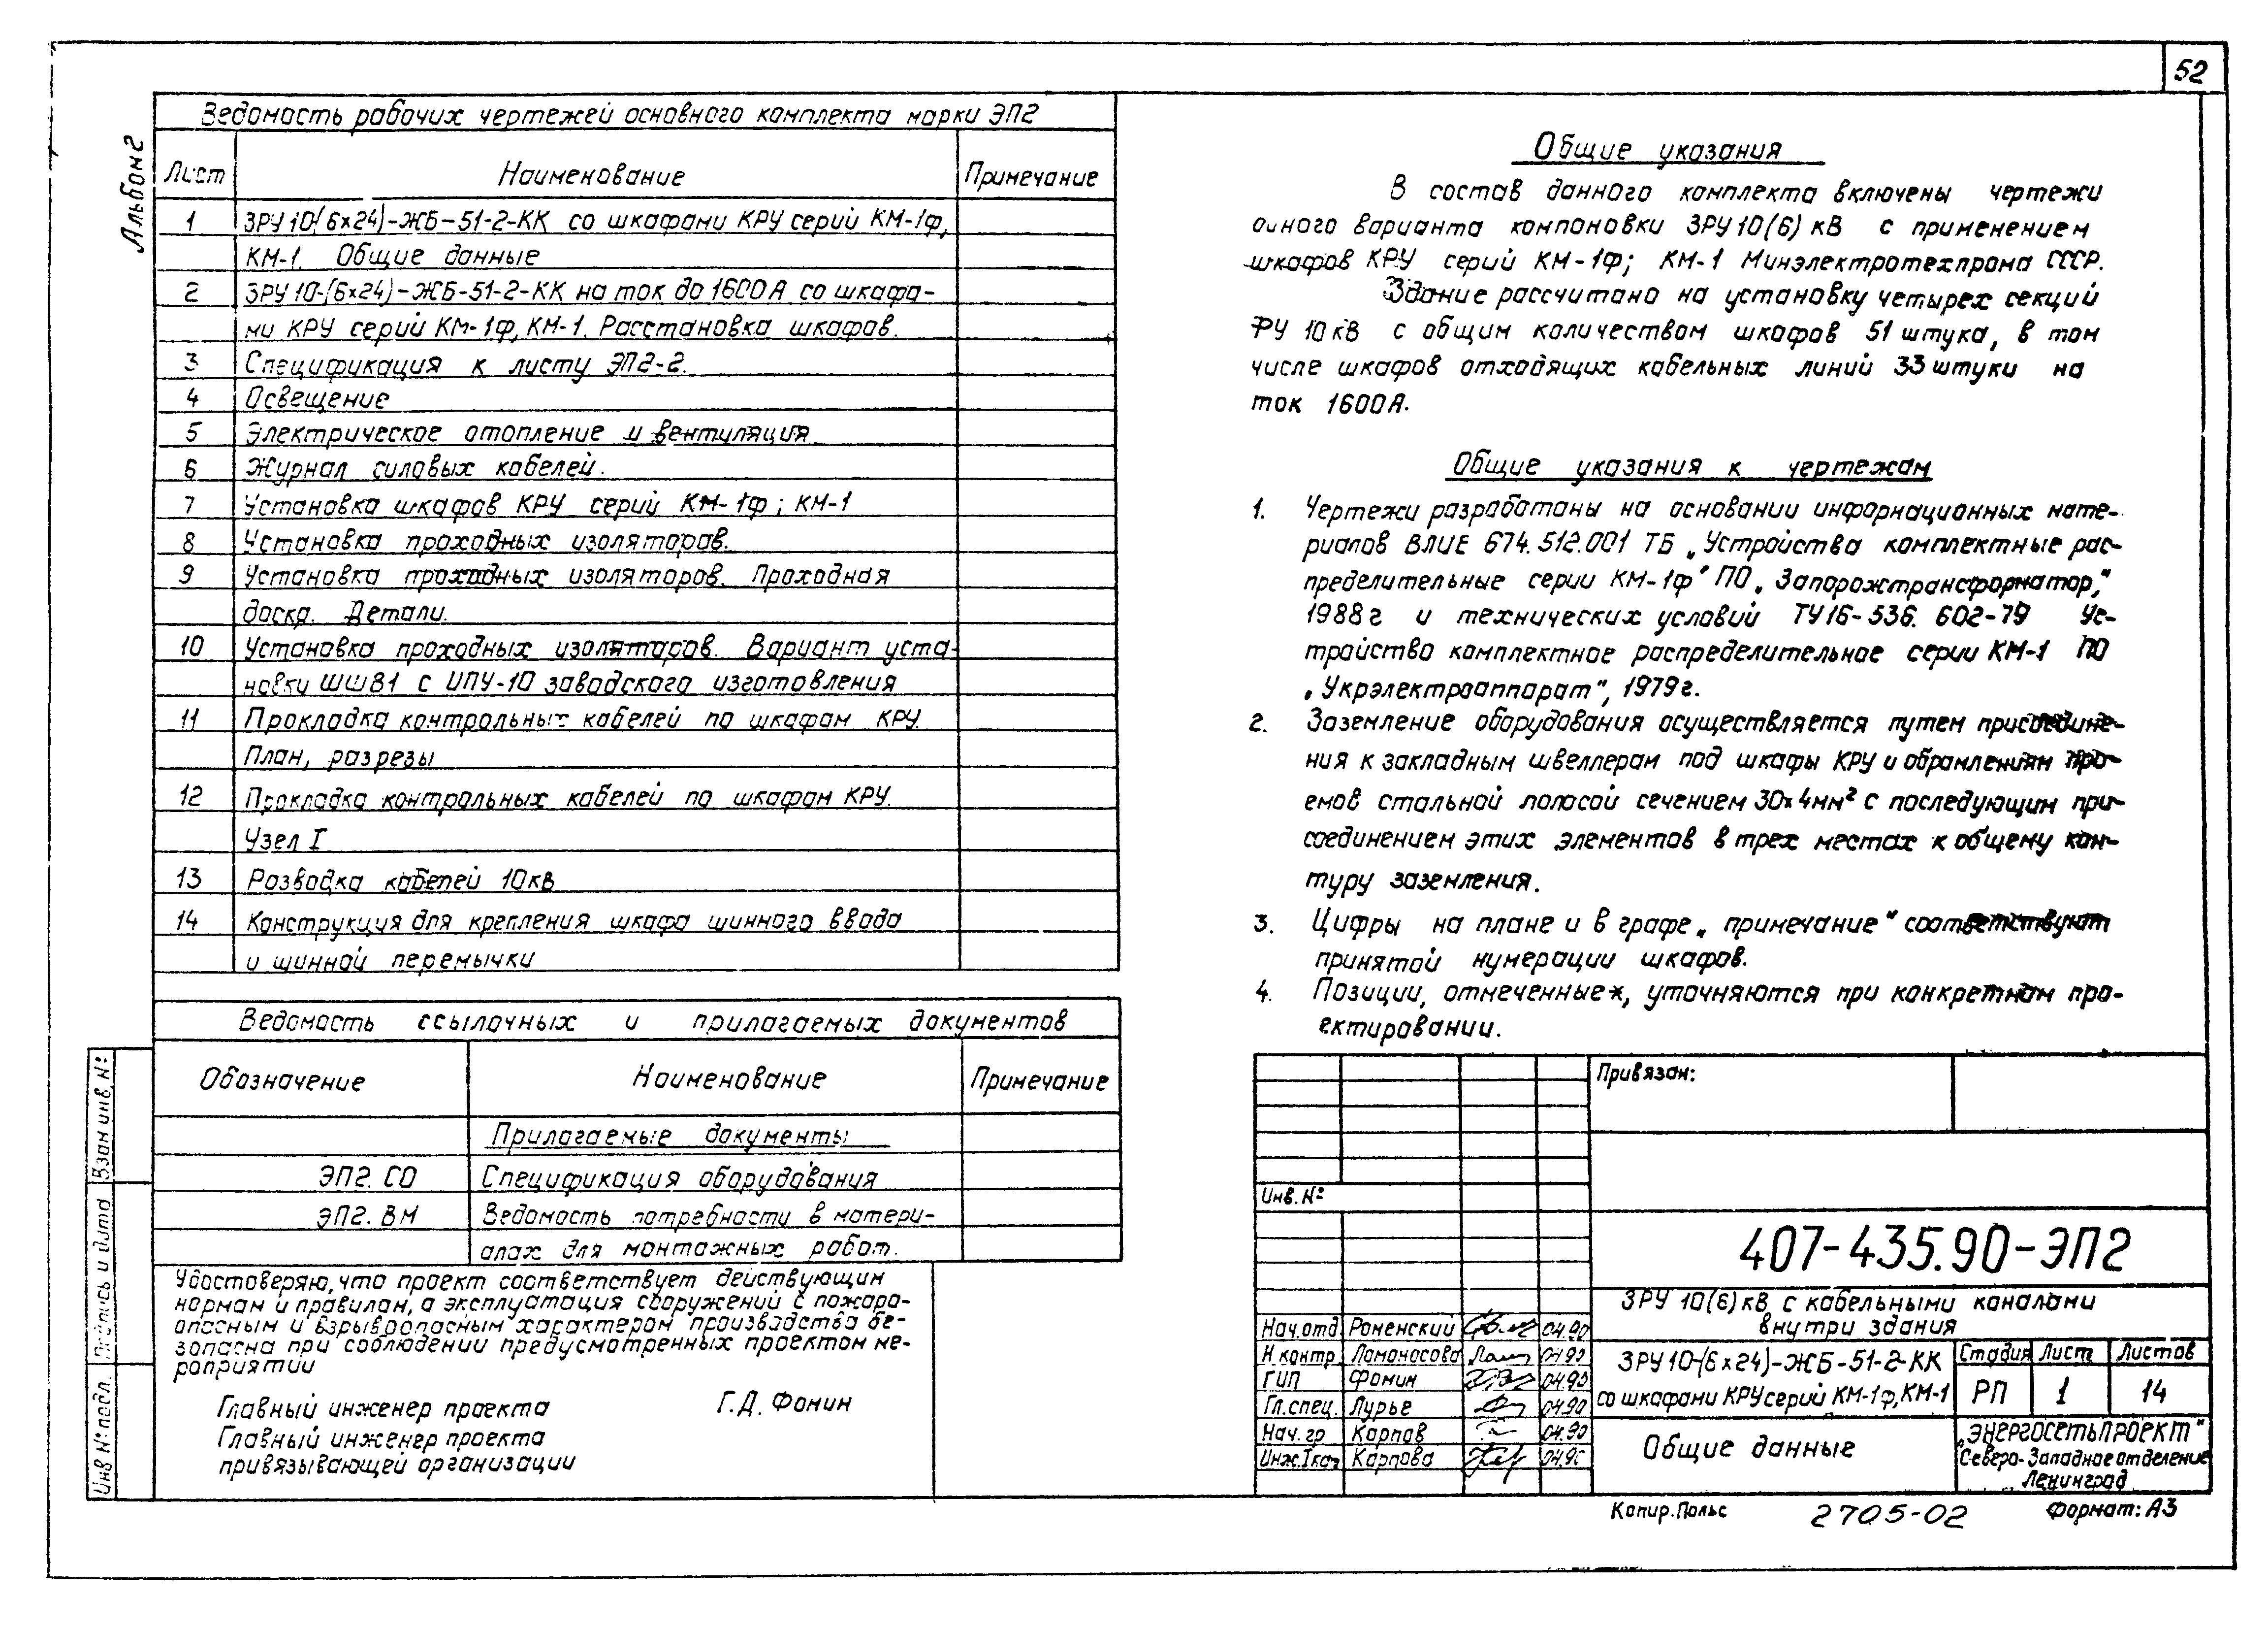 52
Альбом 2
Ведомость рабочих чертежей основного комплекта марки ЭП2
Лист Наименование Примечание
1 ЗРУ 10-(6×24)-ЖБ-51-2-КК со шкафами КРУ серий КМ-1ф,
КМ-1. Общие данные
2 ЗРУ 10-(6×24)-ЖБ-51-2-КК на ток до 1600А со шкафа-
ми КРУ серий КМ-1ф, КМ-1. Расстановка шкафов.
3 Спецификация к листу ЭП2-2.
4 Освещение
5 Электрическое отопление и вентиляция.
6 Журнал силовых кабелей.
7 Установка шкафов КРУ серий КМ-1ф; КМ-1
8 Установка проходных изоляторов.
9 Установка проходных изоляторов. Проходная
доска. Детали.
10 Установка проходных изоляторов. Вариант уста-
новки ШШВ1 с ИПУ-10 заводского изготовления
11 Прокладка контрольных кабелей по шкафам КРУ.
План, разрезы
12 Прокладка контрольных кабелей по шкафам КРУ.
Узел I
13 Разводка кабелей 10кВ
14 Конструкция для крепления шкафа шинного ввода
и шинной перемычки
Ведомость ссылочных и прилагаемых документов
Обозначение Наименование Примечание
Прилагаемые документы
ЭП2. СО Спецификация оборудования
ЭП2. ВМ Ведомость потребности в матери-
алах для монтажных работ.
Удостоверяю, что проект соответствует действующим
нормам и правилам, а эксплуатация сооружений с пожаро-
опасным и взрывоопасным характером производства бе-
зопасна при соблюдении предусмотренных проектом ме-
роприятий
Главный инженер проекта Г.Д. Фомин
Главный инженер проекта
привязывающей организации
Взам инв. №
Подпись и дата
Инв № подл.
Общие указания
В состав данного комплекта включены чертежи
одного варианта компоновки ЗРУ 10(6) кВ с применением
шкафов КРУ серий КМ-1ф; КМ-1 Минэлектротехпрома СССР.
Здание рассчитано на установку четырех секций
РУ 10кВ с общим количеством шкафов 51 штука, в том
числе шкафов отходящих кабельных линий 33 штуки на
ток 1600А.
Общие указания к чертежам
1. Чертежи разработаны на основании информационных мате-
риалов ВЛИЕ 674.512.001 ТБ „Устройства комплектные рас-
пределительные серии КМ-1ф" ПО „Запорожтрансформатор,"
1988г и технических условий ТУ16-536.602-79 Ус-
тройство комплектное распределительное серии КМ-1 ПО
„Укрэлектроаппарат", 1979г.
2. Заземление оборудования осуществляется путем присоедине-
ния к закладным швеллерам под шкафы КРУ и обрамлениям про-
емов стальной полосой сечением 30×4мм² с последующим при-
соединением этих элементов в трех местах к общему кон-
туру заземления.
3. Цифры на плане и в графе „примечание" соответствуют
принятой нумерации шкафов.
4. Позиции, отмеченные*, уточняются при конкретном про-
ектировании.
Привязан:
Инв. №
407-435.90-ЭП2
ЗРУ 10(6) кВ с кабельными каналами
внутри здания
Нач.отд Роменский 04.90
Н контр. Ломоносова 04.90
ГИП Фомин 04.90
Гл.спец. Лурье 04.90
Нач. гр Карпов 04.90
Инж.Iкат Карпова 04.90
ЗРУ10-(6×24)-ЖБ-51-2-КК
со шкафами КРУ серий КМ-1ф, КМ-1
Стадия Лист Листов
РП 1 14
Общие данные
„Энергосетьпроект"
Северо-Западное отделение
Ленинград
Копир. Польс 2705-02 Формат: А3